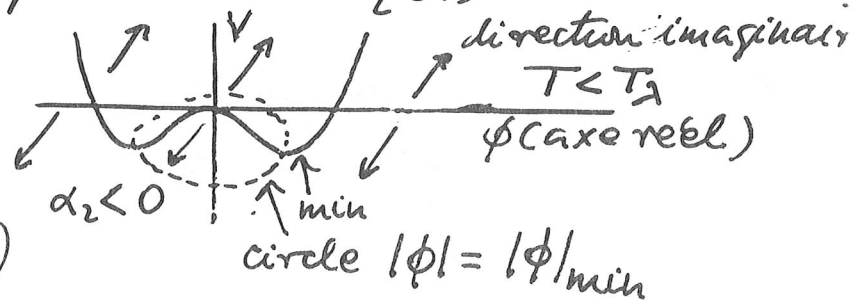 V
direction imaginair
T < Tλ
ϕ (axe réel)
α₂ < 0
min
circle |ϕ| = |ϕ|min